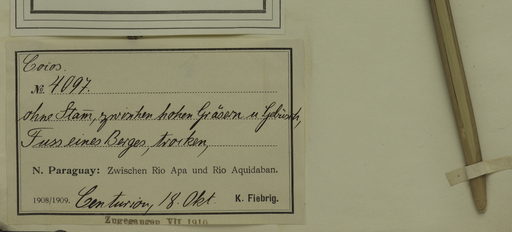 Cocos.
№. 4097.
ohne Stam̄, zwischen hohen Gräsern u Gebüsch,
Fuss eines Berges, trocken,
N. Paraguay: Zwischen Rio Apa und Rio Aquidaban.
1908/1909. Centurion, 18. Okt. K. Fiebrig.
Zugegangen VII 1910